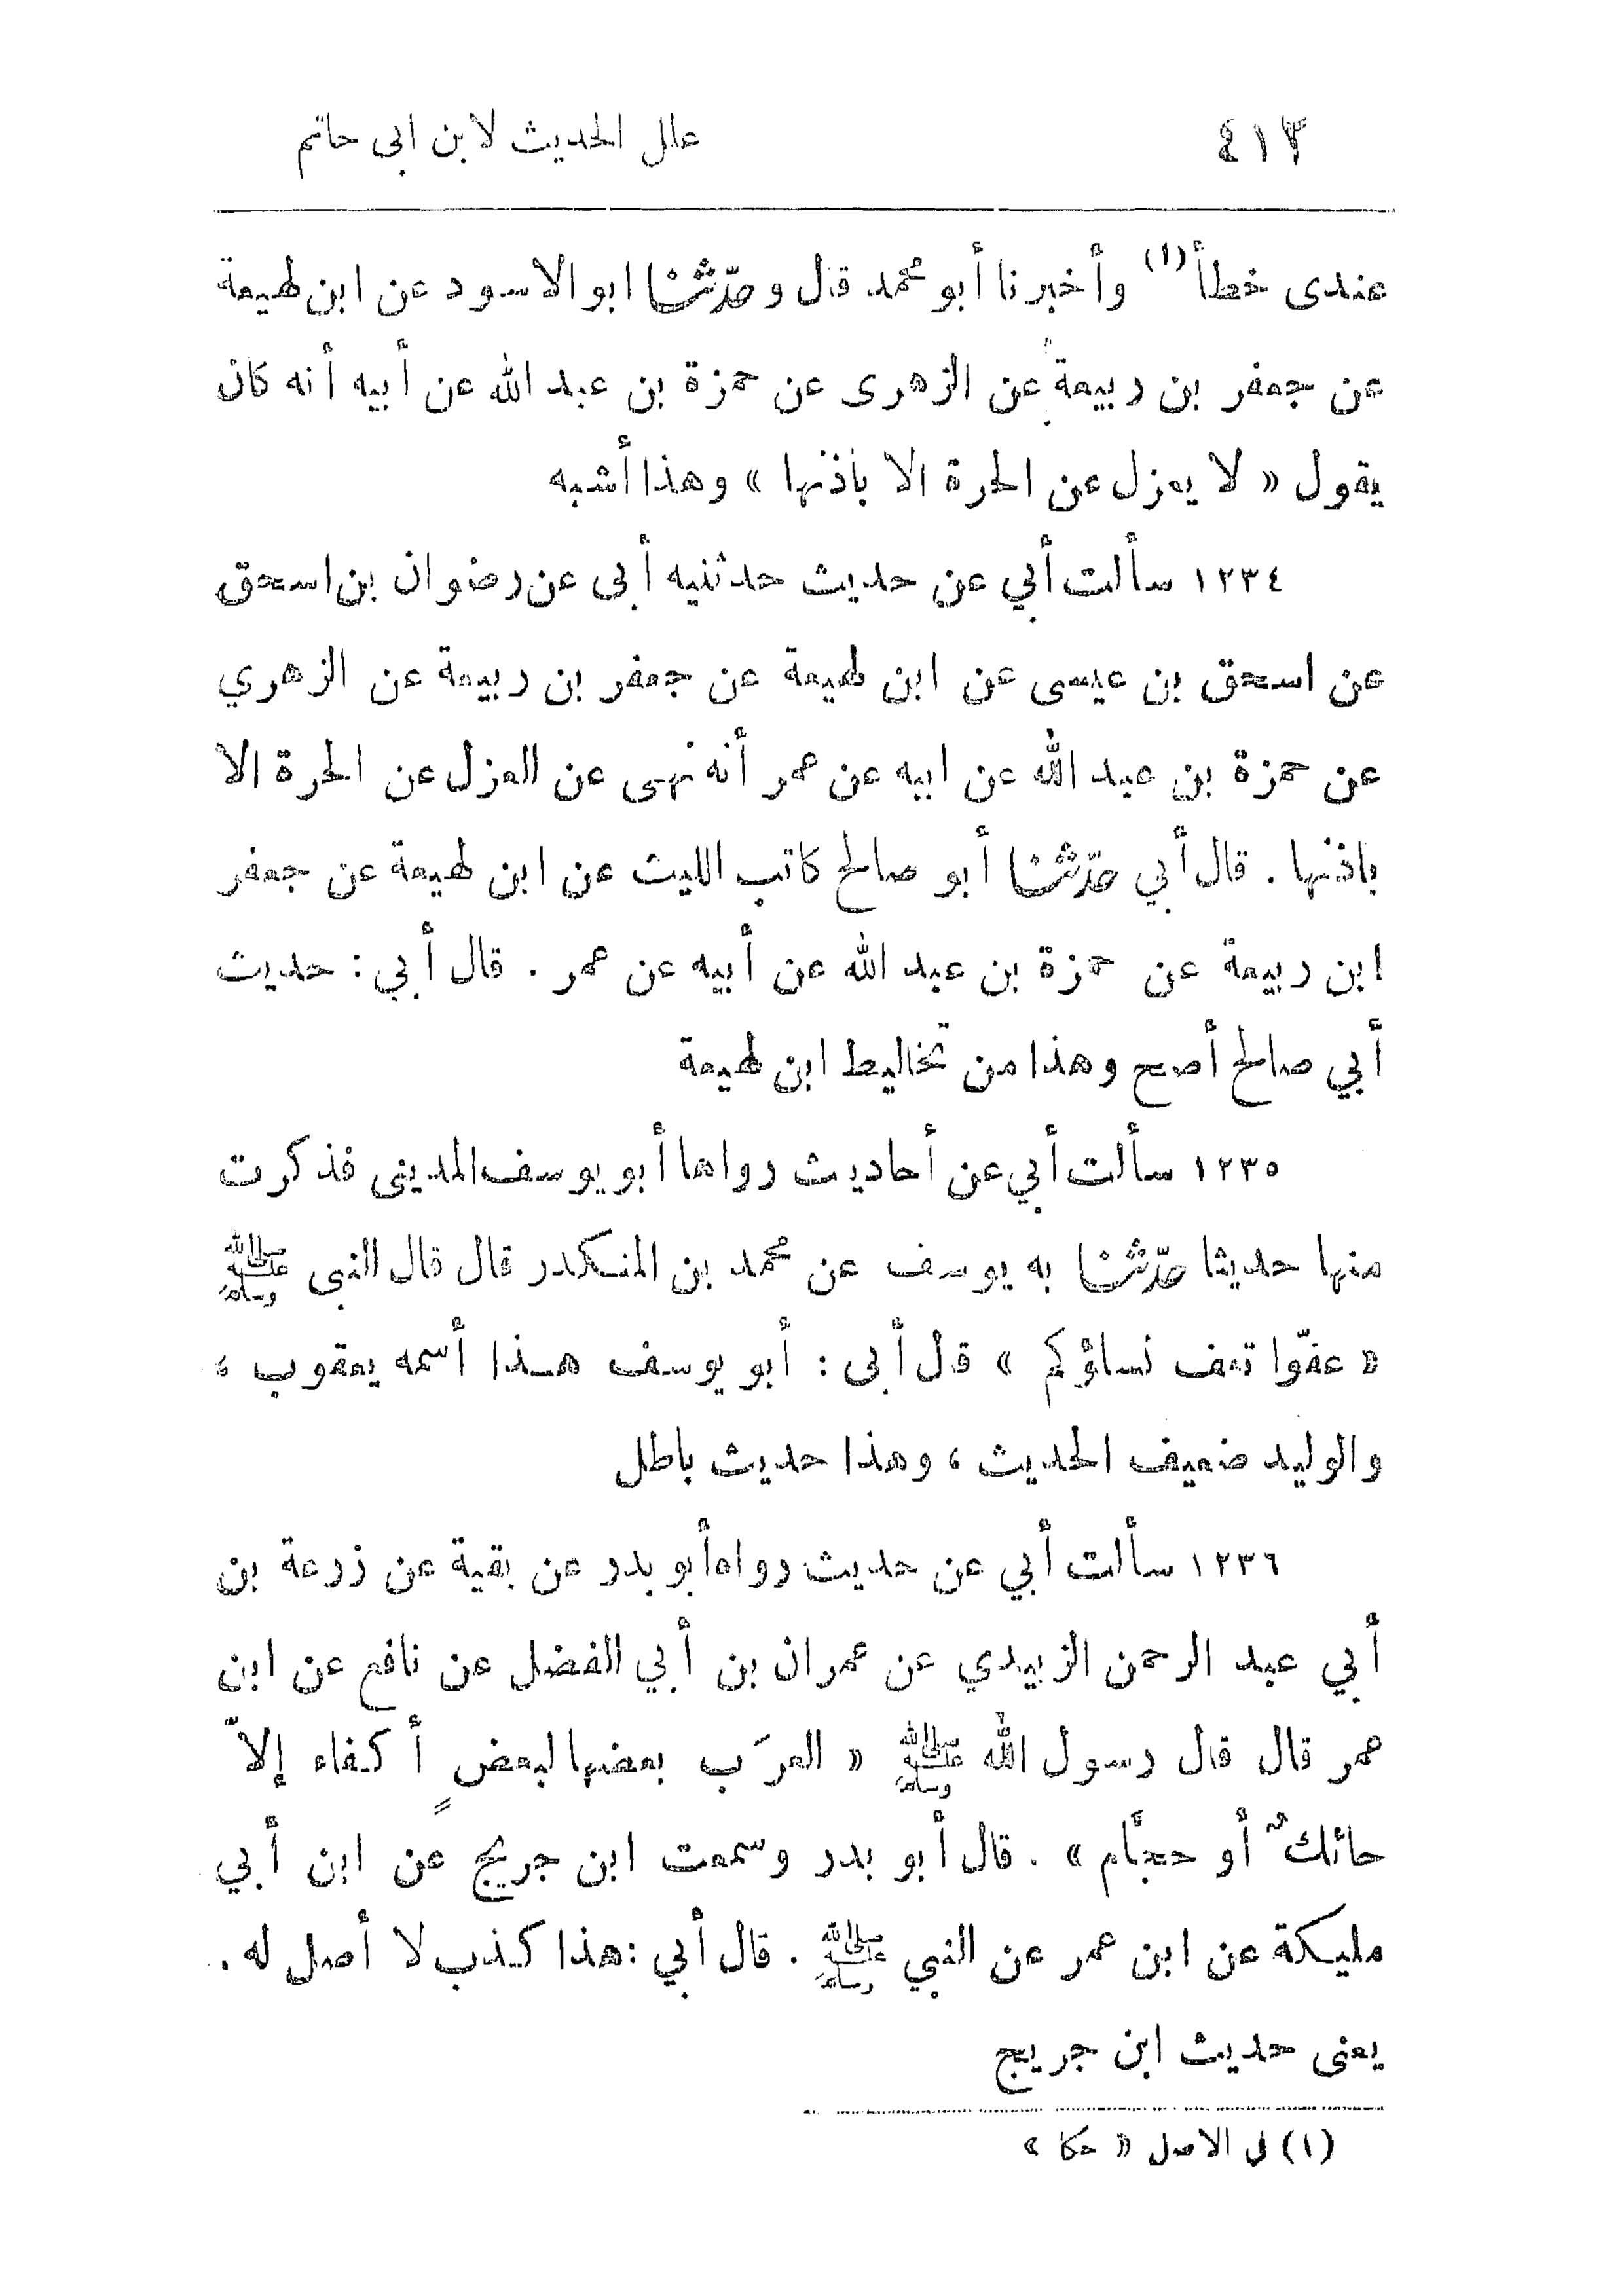 ٤١٣ علل الحديث لابن ابى حاتم
عندى خطأ (١) وأخبرنا أبو محمد قال وحدّثنا ابو الاسود عن ابن لهيعة
عن جعفر بن ربيعة عن الزهرى عن حمزة بن عبد الله عن أبيه أنه كان
يقول « لا يعزل عن الحرة الا بأذنها » وهذا أشبه
١٢٣٤ سألت أبي عن حديث حدثنيه أبى عن رضوان بن اسحق
عن اسحق بن عيسى عن ابن لهيعة عن جعفر بن ربيعة عن الزهري
عن حمزة بن عبد الله عن ابيه عن عمر أنه نهى عن العزل عن الحرة الا
باذنها . قال أبي حدّثنا أبو صالح كاتب الليث عن ابن لهيعة عن جعفر
ابن ربيعة عن حمزة بن عبد الله عن أبيه عن عمر . قال أبي : حديث
أبي صالح أصح وهذا من تخاليط ابن لهيعة
١٢٣٥ سألت أبي عن أحاديث رواها أبو يوسف المدينى فذكرت
منها حديثا حدّثنا به يوسف عن محمد بن المنكدر قال قال النبى ﷺ
« عفّوا تعف نساؤكم » قال أبى : أبو يوسف هذا أسمه يعقوب ،
والوليد ضعيف الحديث ، وهذا حديث باطل
١٢٣٦ سألت أبي عن حديث رواه أبو بدر عن بقية عن زرعة بن
أبي عبد الرحمن الزبيدي عن عمران بن أبي الفضل عن نافع عن ابن
عمر قال قال رسول الله ﷺ « العرَب بعضها لبعضٍ أكفاء إلاّ
حائكٌ أو حجَّام » . قال أبو بدر وسمعت ابن جريج عن ابن أبي
مليكة عن ابن عمر عن النبي ﷺ . قال أبي : هذا كذب لا أصل له .
يعنى حديث ابن جريج
(١) فى الاصل « حكا »